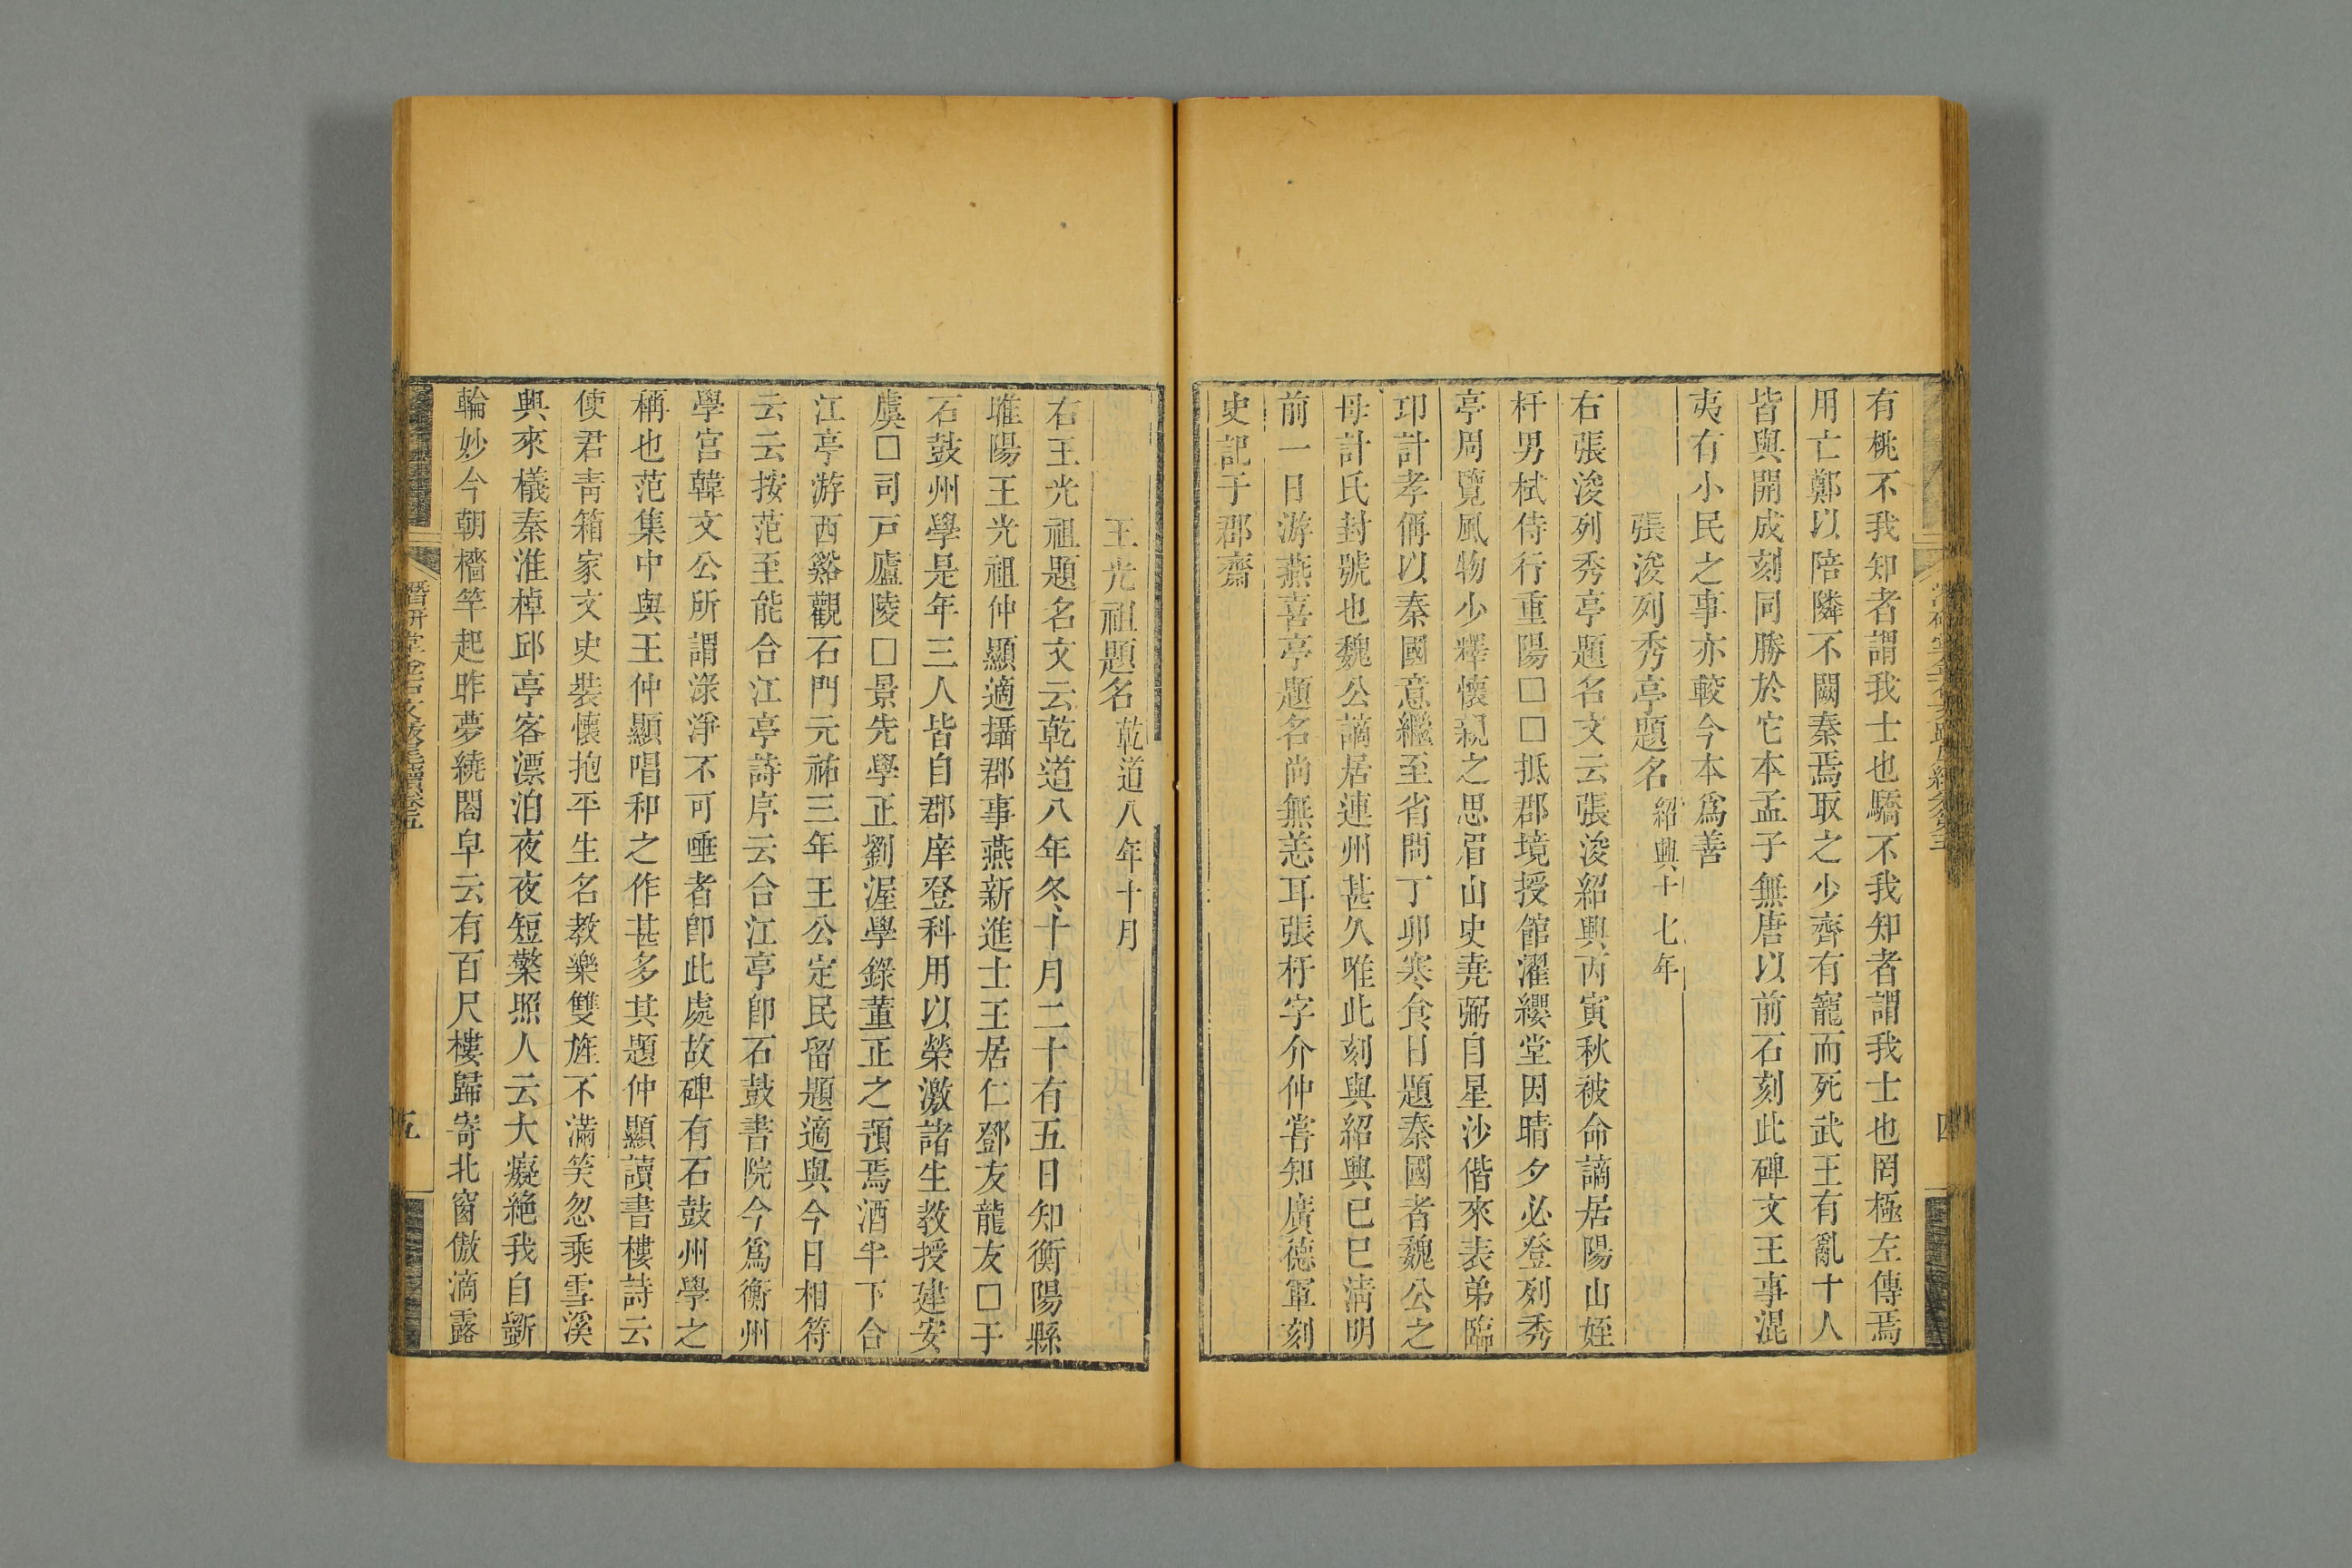 有桃不我知者謂我士也驕不我知者謂我士也罔極左傳焉
用亡鄭以陪隣不闕秦焉取之少齊有寵而死武王有亂十人
皆與開成刻同勝於它本孟子無唐以前石刻此碑文王事混
夷有小民之事亦較今本爲善
張浚列秀亭題名紹興十七年
右張浚列秀亭題名文云張浚紹興丙寅秋被命謫居陽山姪
杅男栻侍行重陽□□抵郡境授館濯纓堂因晴夕必登列秀
亭周覽風物少釋懷親之思眉山史堯弼自星沙偕來表弟臨
卭計孝偁以秦國意繼至省問丁卯寒食日題秦國者魏公之
母計氏封號也魏公謫居連州甚久唯此刻與紹興已巳淸明
前一日游燕喜亭題名尚無恙耳張杅字介仲嘗知廣德軍刻
史記于郡齋
王光祖題名乾道八年十月
右王光祖題名文云乾道八年冬十月二十有五日知衡陽縣
睢陽王光祖仲顯適攝郡事燕新進士王居仁鄧友龍友□于
石鼓州學是年三人皆自郡庠登科用以榮激諸生教授建安
虞□司戸廬陵□景先學正劉渥學錄董正之預焉酒半下合
江亭游西谿觀石門元祐三年王公定民留題適與今日相符
云云按范至能合江亭詩序云合江亭卽石鼓書院今爲衡州
學宮韓文公所謂淥淨不可唾者卽此處故碑有石鼓州學之
稱也范集中與王仲顯唱和之作甚多其題仲顯讀書樓詩云
使君靑箱家文史裝懷抱平生名教樂雙旌不滿笑忽乘雪溪
興來檥秦淮棹邱亭客漂泊夜夜短檠照人云大癡絶我自斵
輪妙今朝檣竿起昨夢繞閤皁云有百尺樓歸寄北窗傲滴露
潛研堂金石文跋尾續卷五
四
五